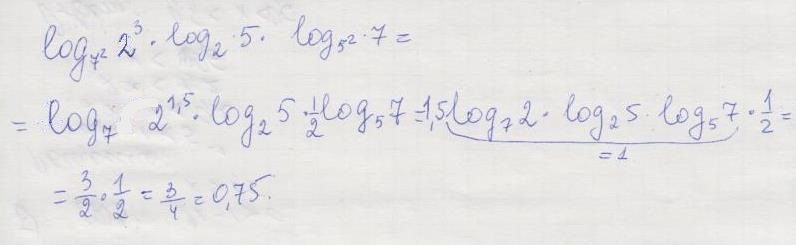 log_{7²} 2³ · log₂ · 5 · log_{5²} · 7 =
= log₇ 2^{1,5} · log₂ 5 · \frac{1}{2} log₅ 7 = 1,5 log₇ 2 · log₂ 5 · log₅ 7 · \frac{1}{2} =
= 1
= \frac{3}{2} · \frac{1}{2} = \frac{3}{4} = 0,75.